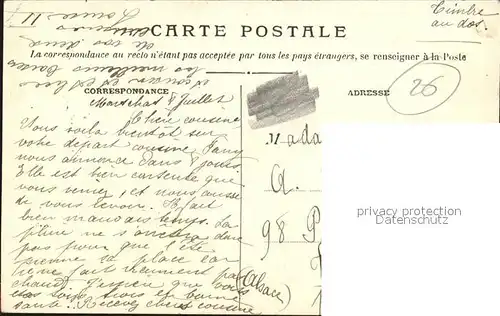 Timbre
au dos
CARTE POSTALE
La correspondance au recto n'étant pas acceptée par tous les pays étrangers, se renseigner à la Poste
26
CORRESPONDANCE
ADRESSE
8 Juillet
Chère cousine
Vous voilà bientôt sur
votre départ cousine Fany
nous annonce dans 8 jours
Elle est bien contente que
vous veniez, et nous aussi
de vous revoir. Il fait
bien mauvais temps. La
pluie ne s'arrêtera donc
pas pour que l'été
prenne sa place car
il ne fait vraiment pas
chaud. J'espère que vous
êtes tous trois en bonne
santé. Recevez chère cousine
Mada
A.
98 P
(Alsace)
privacy protection
Datenschutz